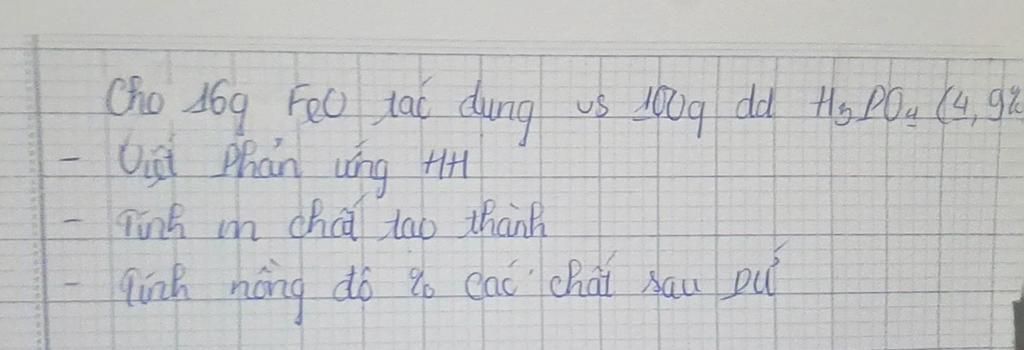 Cho 16g FeO tác dụng vs 100g dd H3PO4 (4,9%
- Viết phản ứng HH
- Tính m chất tạo thành
- Tính nồng độ % các chất sau PỨ